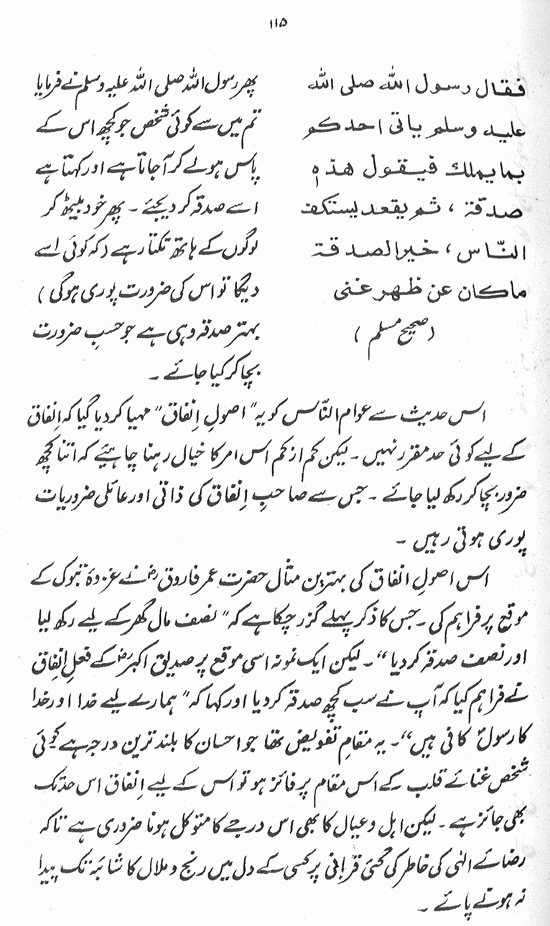 ۱۱۵
فقال رسول الله صلى الله
عليه وسلم ياتى احدكم
بما يملك فيقول هذه
صدقة ، ثم يقعد يستكف
النّاس ، خير الصدقة
ما كان عن ظهر غنى
(صحیح مسلم )
پھر رسول اللہ صلی اللہ علیہ وسلم نے فرمایا
تم میں سے کوئی شخص جو کچھ اس کے
پاس ہو لے کر آجاتا ہے اور کہتا ہے
اسے صدقہ کر دیجئے ۔ پھر خود بیٹھ کر
لوگوں کے ہاتھ تکتا رہے (کہ کوئی اسے
دیگا تو اس کی ضرورت پوری ہوگی )
بہتر صدقہ وہی ہے جو حسبِ ضرورت
بچا کر کیا جائے ۔
اس حدیث سے عوام النّاس کو یہ "اصولِ اِنفاق" مہیا کر دیا گیا کہ اِنفاق
کے لیے کوئی حد مقرر نہیں ۔ لیکن کم از کم اس امر کا خیال رہنا چاہئیے کہ اتنا کچھ
ضرور بچا کر رکھ لیا جائے ۔ جس سے صاحبِ اِنفاق کی ذاتی اور عائلی ضروریات
پوری ہوتی رہیں ۔
اس اصولِ انفاق کی بہترین مثال حضرت عمر فاروقؓ نے غزوۂ تبوک کے
موقع پر فراہم کی ۔ جس کا ذکر پہلے گزر چکا ہے کہ "نصف مال گھر کے لیے رکھ لیا
اور نصف صدقہ کر دیا"۔ لیکن ایک نمونہ اسی موقع پر صدیق اکبرؓ کے فعلِ اِنفاق
نے فراہم کیا کہ آپ نے سب کچھ صدقہ کر دیا اور کہا کہ "ہمارے لیے خدا اور خدا
کا رسولؐ کافی ہیں"۔ یہ مقامِ تفویض تھا جو احسان کا بلند ترین درجہ ہے کوئی
شخص غنائے قلب کے اس مقام پر فائز ہو تو اس کے لیے اِنفاق اس حد تک
بھی جائز ہے ۔ لیکن اہل و عیال کا بھی اس درجے کا متوکل ہونا ضروری ہے تاکہ
رضائے الٰہی کی خاطر کی گئی قربانی پر کسی کے دل میں رنج و ملال کا شائبہ تک پیدا
نہ ہونے پائے ۔